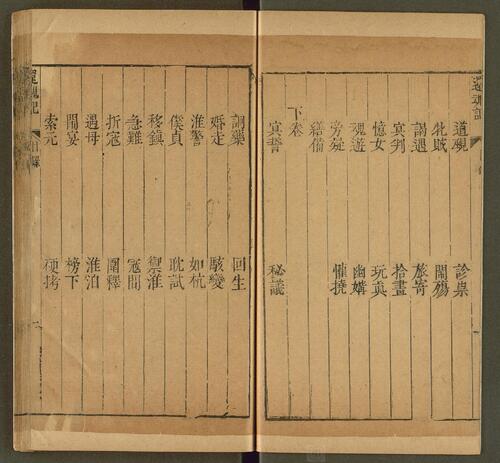 還魂記
道覡 診祟
牝賊 鬧殤
謁遇 旅寄
冥判 拾畫
憶女 玩真
魂遊 幽媾
旁疑 懽撓
繕備
下卷
冥誓 秘議
詗藥 回生
婚走 駭變
淮警 如杭
僕貞 耽試
移鎮 禦淮
急難 寇間
折寇 圍釋
遇母 淮泊
鬧宴 榜下
索元 硬拷
還魂記 目錄